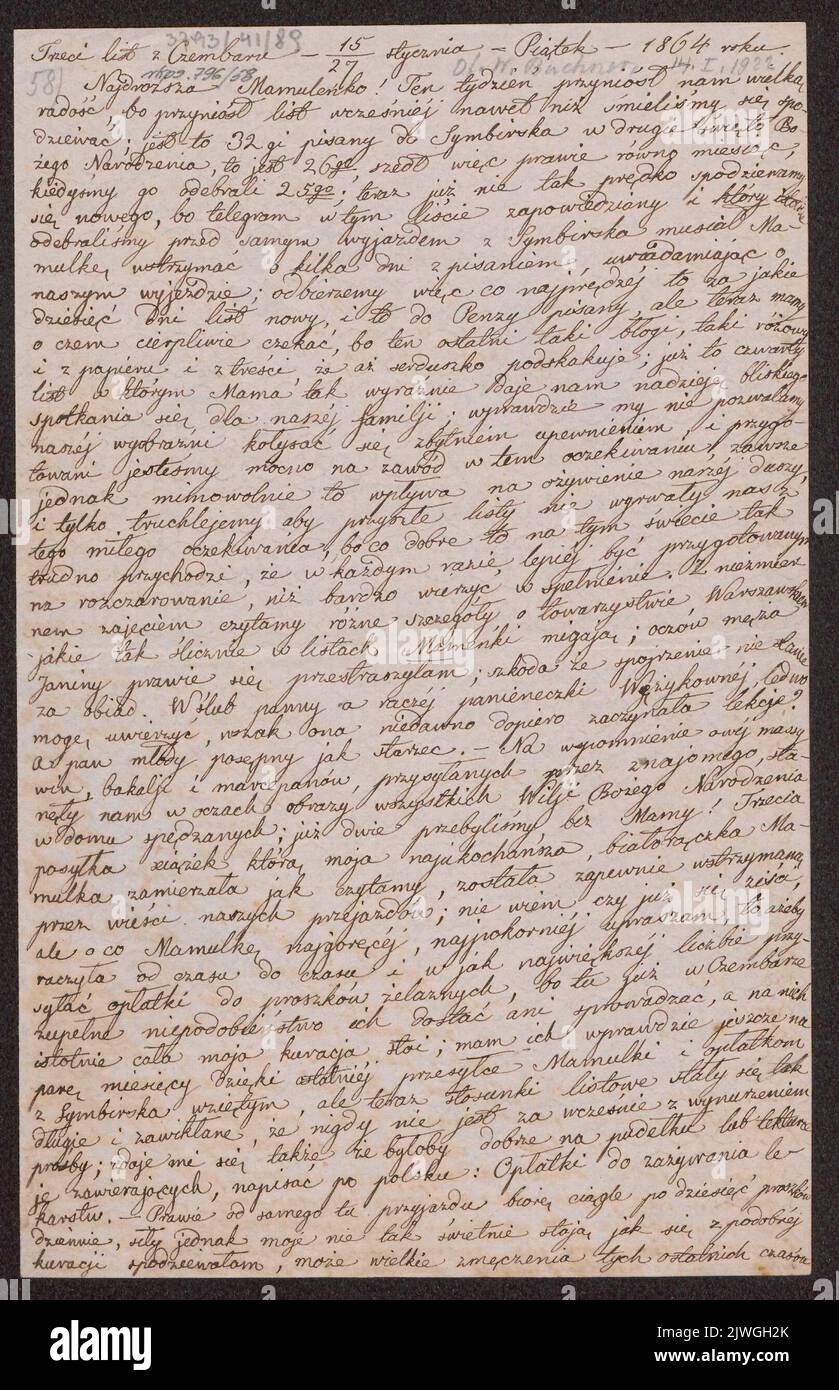 3793/41/89
Trzeci list z Czembaru — 15/27 stycznia — Piątek — 1864 roku.
58) mps. 796/58 14. I. 1922
Najdroższa Mamuleńko! Ten tydzień przyniósł nam wielką
radość, bo przyniósł list wcześniej nawet niż śmieliśmy się spo-
dziewać; jest to 32gi pisany do Symbirska w drugie święto Bo-
żego Narodzenia, to jest 26go, szedł więc prawie równo miesiąc,
kiedyśmy go odebrali 25go; teraz już nie tak prędko spodziewamy
się nowego, bo telegram w tym liście zapowiedziany i który
odebraliśmy przed samym wyjazdem z Symbirska musiał Ma-
mulkę wstrzymać o kilka dni z pisaniem uwiadamiając o
naszym wyjeździe; odbierzemy więc co najprędzej to za jakie
dziesięć dni list nowy, i to do Penzy pisany, ale teraz mamy
o czem cierpliwie czekać, bo ten ostatni taki błogi, taki różowy
i z papieru i z treści że aż serduszko podskakuje; już to czwarty
list w którym Mama tak wyraźnie daje nam nadzieję bliskiego
spotkania się dla naszéj familji; wprawdzie my nie pozwalamy
naszéj wyobraźni kołysać się zbytniem upewnieniem i przygo-
towani jesteśmy mocno na zawód w tem oczekiwaniu, zawsze
jednak mimowolnie to wpływa na ożywienie naszéj duszy,
i tylko truchlejemy aby przyszłe listy nie wyrwały nas z
tego miłego oczekiwania, bo co dobre to na tym świecie tak
trudno przychodzi, że w każdym razie lepiéj być przygotowanym
na rozczarowanie, niż bardzo wierzyć w spełnienie. Z niezmier-
nem zajęciem czytamy różne szczegóły o towarzystwie Warszawskiem
jakie tak ślicznie w listach Mameńki migają; oczów męża
Janiny prawie się przestraszyłam; szkoda że spojrzenie nie stanie
za obiad. W ślub panny a raczéj panieneczki Wężykownéj, ledwo
mogę uwierzyć, wszak ona niedawno dopiero zaczynała lekcje?
A pan młody posępny jak starzec. — Na wspomnienie owéj massy
win, bakalji i marcepanów, przysyłanych przez znajomego, sta-
nęły nam w oczach obrazy wszystkich Wilji Bożego Narodzenia
w domu spędzanych; już dwie przebyliśmy bez Mamy! Trzecia
posyłka książek którą moja najukochańsza, białorączka Ma-
mulka zamierzała jak czytamy, została zapewnie wstrzymaną
przez wieści naszych przejazdów; nie wiem czy już się ziści,
ale o co Mamulkę najgoręcéj, najpokorniéj upraszam, to ażeby
raczyła od czasu do czasu i w jak największéj liczbie przy-
syłać opłatki do proszków żelaznych, bo tu już w Czembarze
zupełne niepodobieństwo ich dostać ani sprowadzać, a na nich
istotnie cała moja kuracja stoi; mam ich wprawdzie jeszcze na
parę miesięcy dzięki ostatniéj przesyłce Mamulki i opłatkom
z Symbirska wziętym, ale teraz stosunki listowe stały się tak
długie i zawikłane, że nigdy nie jest za wcześnie z wynurzeniem
prośby; zdaje mi się także że byłoby dobrze na pudełku lub tekturze
je zawierających, napisać po polsku: Opłatki do zażywania le-
karstw. — Prawie od samego tu przyjazdu biorę ciągle po dziesięć proszków
dziennie, siły jednak moje nie tak świetnie stoją jak się z podobnéj
kuracji spodziewałam, może wielkie zmęczenia tych ostatnich czasów
alamy
Image ID: 2JWGH2K
www.alamy.com